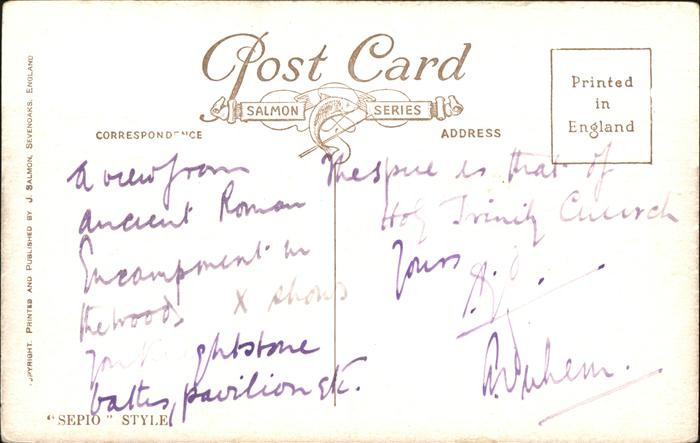 Post Card
SALMON SERIES
CORRESPONDENCE
ADDRESS
Printed
in
England
COPYRIGHT. PRINTED AND PUBLISHED BY J. SALMON, SEVENOAKS, ENGLAND
A view from
ancient Roman
Encampment in
the woods X shows
you Knightstone
baths, pavilion etc.
"SEPIO" STYLE
The spire is that of
Holy Trinity Church
Yours